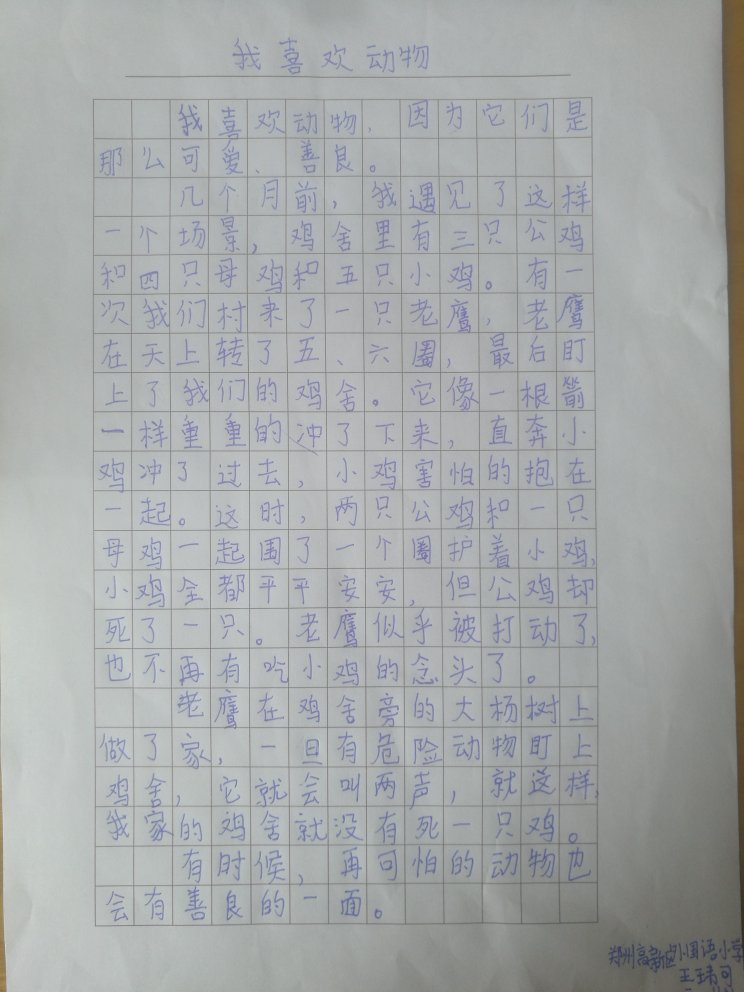 我喜欢动物
我喜欢动物，因为它们是
那么可爱、善良。
几个月前，我遇见了这样
一个场景，鸡舍里有三只公鸡
和四只母鸡和五只小鸡。有一
次我们村来了一只老鹰，老鹰
在天上转了五、六圈，最后盯
上了我们的鸡舍。它像一根箭
一样重重的冲了下来，直奔小
鸡冲了过去，小鸡害怕的抱在
一起。这时，两只公鸡和一只
母鸡一起围了一个圈护着小鸡，
小鸡全都平平安安，但公鸡却
死了一只。老鹰似乎被打动了，
也不再有吃小鸡的念头了。
老鹰在鸡舍旁的大杨树上
做了家，一旦有危险动物盯上
鸡舍，它就会叫两声，就这样，
我家的鸡舍就没有死一只鸡。
有时候，再可怕的动物也
会有善良的一面。
郑州高新区外国语小学
王玮可